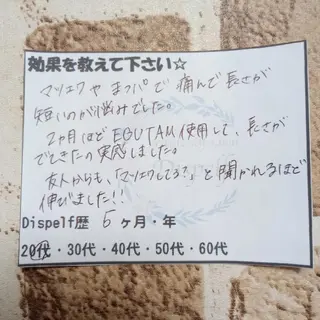 効果を教えて下さい☆
マツエクや まつパで 痛んで 長さが
短いのが悩みでした。
2ヵ月ほど EBUTAM 使用して、長さが
でてきたの実感しました。
友人からも、「マツエクしてる?」と 聞かれるほど
伸びました!!
Dispelf歴 5 ヶ月・年
20代・30代・40代・50代・60代